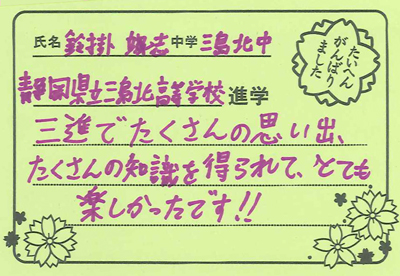 氏名 鈴掛 煌志 中学 三島北中
たいへん
がんばり
ました
静岡県立三島北高等学校 進学
三進でたくさんの思い出、
たくさんの知識を得られて、とても
楽しかったです!!